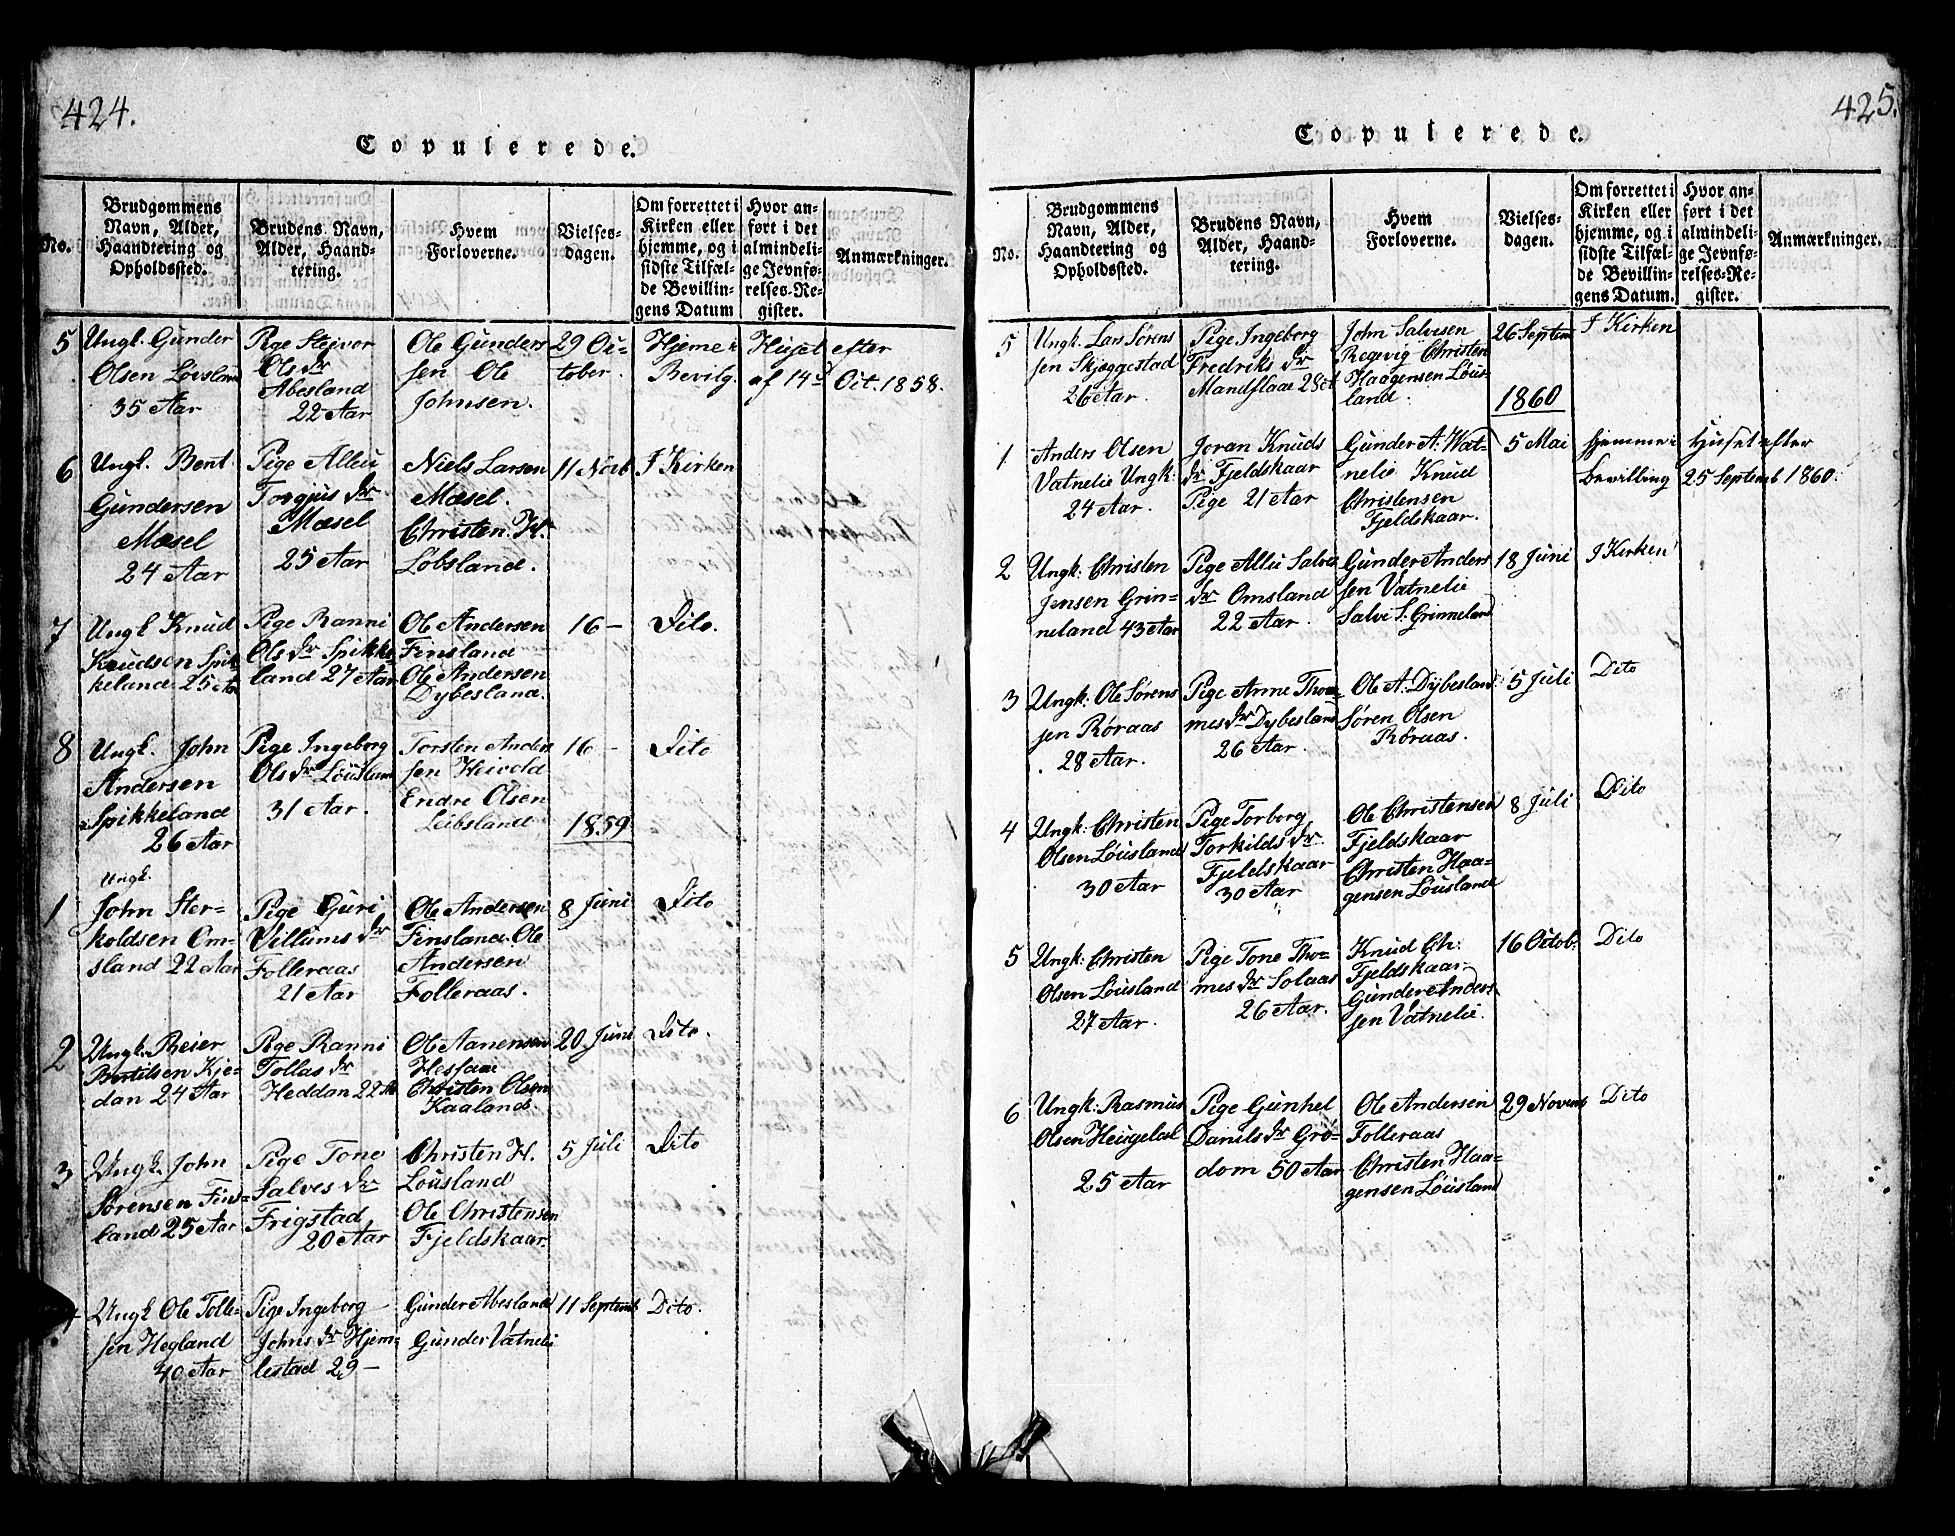 424.
Copulerede.
No.
Brudgommens
Navn, Alder,
Haandtering og
Opholdssted.
Brudens Navn,
Alder, Haand-
tering.
Hvem
Forloverne.
Vielses-
dagen.
Om forrettet i
Kirken eller
hjemme, og i
sidste Tilfæl-
de Bevillin-
gens Datum
Hvor an-
ført i det
almindeli-
ge Jevnfø-
relses-Re-
gister.
Anmærkninger.
5
Ungk. Gunder
Olsen Løvsland
35 Aar
Pige Stejvor
Ols dr
Abesland
22 Aar
Ole Gunders
sen Ole
Johnsen.
29 Oc-
tober.
Hjeme
Bevilg.
Huset
af 14d
efter
Oct. 1858.
6
Ungk. Bent
Gundersen
Mæsel
24 Aar
Pige Alleu
Torgjus dr
Mæsel
25 Aar
Niels Larsen
Mæsel.
Christen H.
Löbsland.
11 Novb
I Kirken
7
Ungk Knud
Knudsen Spik-
keland 25 Aar
Pige Ranni
Ols dr Spikke-
land 27 Aar
Ole Andersen
Finsland
Ole Andersen
Dybesland.
16 –
Dito.
8
Ungk. John
Andersen
Spikkeland
26 Aar
Pige Ingeborg
Ols dr Löusland
31 Aar.
Torsten Ander
sen Heivold
Endre Olsen
Löbsland
16 –
Dito
1859
1
Ungk.
John Ster-
koldsen Om-
sland 22 Aar
Pige Guri
Villums dr
Folleraas
21 Aar
Ole Andersen
Finsland Ole
Andersen
Folleraas.
8 Juni
Dito
2
Ungk. Reier
Bertilsen Kje-
dan 24 Aar
Pige Ranni
Tollas dr
Heddan 22 Ar
Ole Aanensen
Hesfaie
Christen Olsen
Kaaland.
20 Juni
Dito.
3
Ungk. John
Sørensen Fins-
land 25 Aar
Pige Tone
Salves dr
Frigstad
20 Aar
Christen H.
Löusland
Ole Christensen
Fjeldskaar.
5 Juli
Dito
4
Ungk Ole Tolle-
sen Hegland
40 Aar
Pige Ingeborg
Johns dr Hjem-
lestad 29 –
Gunder Abesland
Gunder Vatnelie
11 Septemb
Dito.
425.
Copulerede.
No.
Brudgommens
Navn, Alder,
Haandtering og
Opholdssted.
Brudens Navn,
Alder, Haand-
tering.
Hvem
Forloverne.
Vielses-
dagen.
Om forrettet i
Kirken eller
hjemme, og i
sidste Tilfæl-
de Bevillin-
gens Datum.
Hvor an-
ført i det
almindeli-
ge Jevnfø-
relses-Re-
gister.
Anmærkninger.
5
Ungk. Lars Sørens
sen Skjeggestad
26 Aar.
Pige Ingeborg
Fredriks dr
Mandflaae 28
John Salvesen
Regevig Christen
Haagensen Löus-
land.
26 Septem
I Kirken
1860
1
Anders Olsen
Vatnelie Ungk:
24 Aar.
Joran Knuds
dr Fjeldskaar
Pige 21 Aar
Gunder A. Vat-
nelie Knud
Christensen
Fjeldskaar.
5 Mai
hjemme
bevilling
Huset efter
25 Septemb 1860.
2
Ungk: Christen
Jensen Grin-
neland 43 Aar
Pige Alleu Salves
dr Omsland
22 Aar.
Gunder Anders
sen Vatnelie
Salve S. Grinneland
18 Juni
I Kirken
3
Ungk: Ole Sørens
sen Røraas
28 Aar.
Pige Anne Tho-
mes dr Dybesland
26 Aar.
Ole A. Dybesland
Søren Olsen
Røraas.
5 Juli
Dito
4
Ungk: Christen
Olsen Löusland
30 Aar
Pige Torborg
Torkilds dr
Fjeldskaar
30 Aar
Ole Christensen
Fjeldskaar
Christen Haa-
gensen Löusland
8 Juli
Dito
5
Ungk: Christen
Olsen Löusland
27 Aar.
Pige Tone Tho-
mes dr Solaas
26 Aar.
Knud Ch:
Fjeldskaar
Gunder Anders
sen Vatnelie.
16 Octob.
Dito
6
Ungk: Rasmus
Olsen
25 Aar
Pige Gunhel
Daniels dr Grö-
dom 50 Aar
Ole Andersen
Folleraas
Christen Haa-
gensen Löusland
29 Novemb
Dito